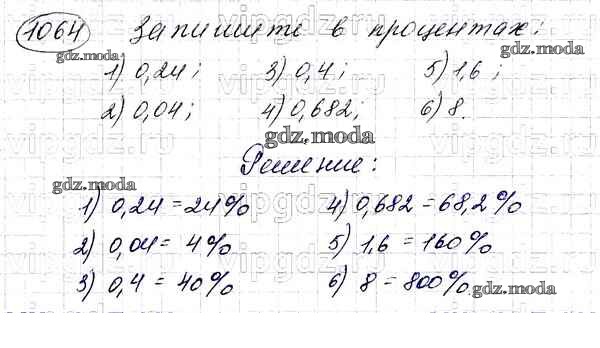 1064 Запишите в процентах:
gdz.moda gdz.moda
1) 0,24; 3) 0,4; 5) 1,6;
2) 0,04; 4) 0,682; 6) 8.
gdz.moda
Решение:
gdz.moda
1) 0,24 = 24% 4) 0,682 = 68,2%
2) 0,04 = 4% 5) 1,6 = 160%
3) 0,4 = 40% 6) 8 = 800%
gdz.moda
vipgdz.ru vipgdz.ru vipgdz.ru